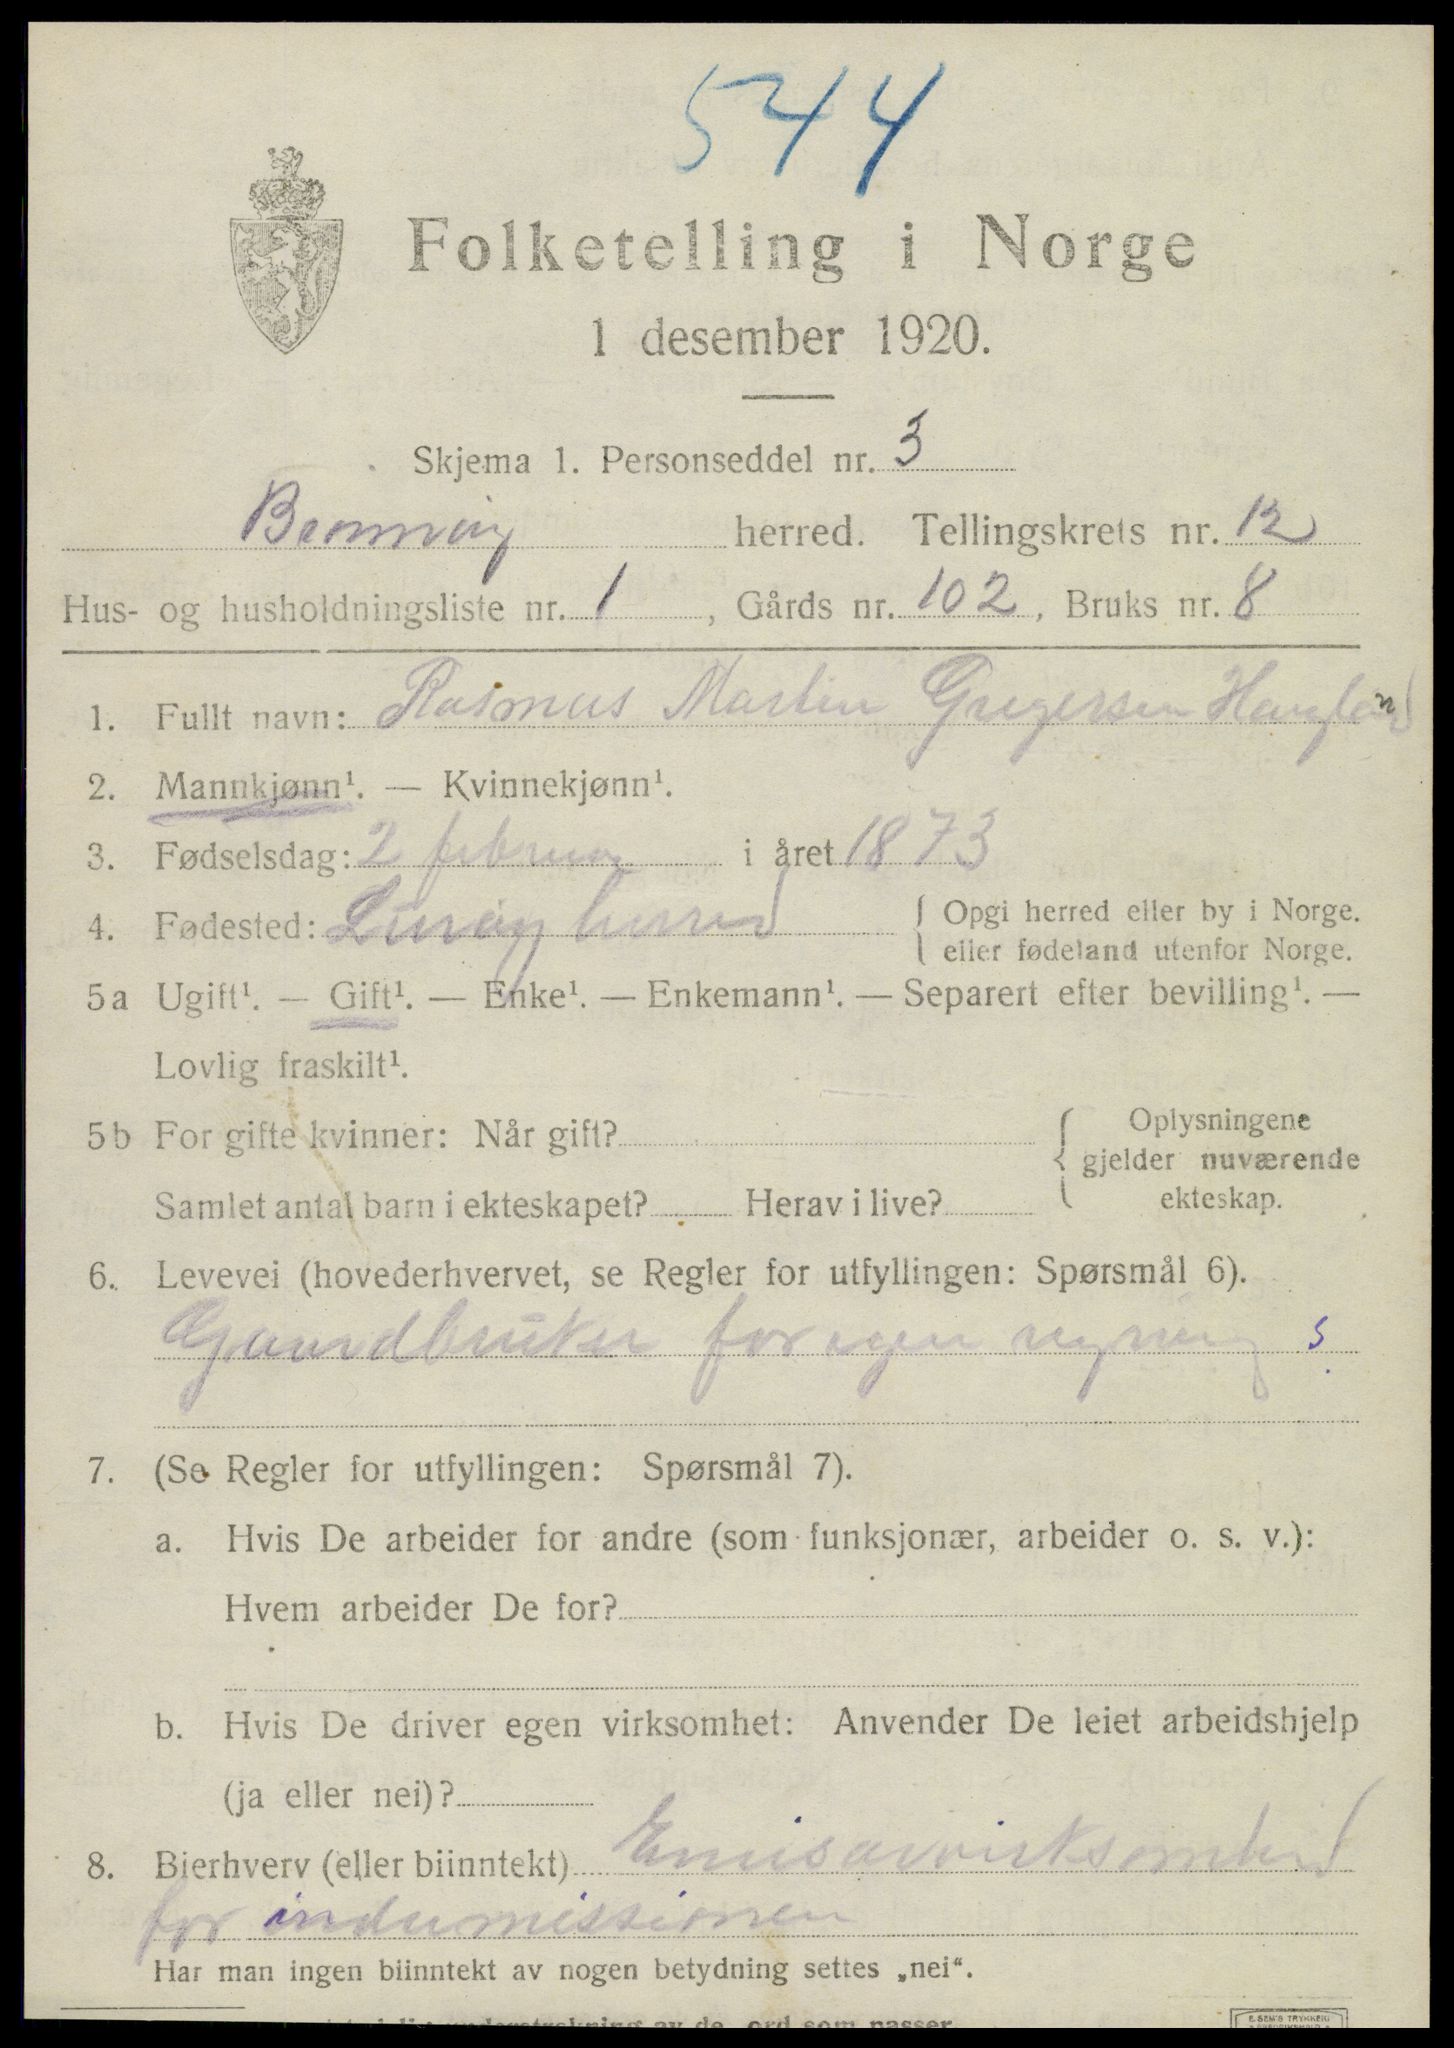 544
Folketelling i Norge
1 desember 1920.
Skjema 1. Personseddel nr. 3
Brønnøy herred. Tellingskrets nr. 12
Hus- og husholdningsliste nr. 1, Gårds nr. 102, Bruks nr. 8
1. Fullt navn: Rasmus Martin Gregersen Haugland
2. Mannkjønn¹. — Kvinnekjønn¹.
3. Fødselsdag: 2 februar i året 1873
4. Fødested: Lurøy herred { Opgi herred eller by i Norge.
{ eller fødeland utenfor Norge.
5a Ugift¹. — Gift¹. — Enke¹. — Enkemann¹. — Separert efter bevilling¹. —
Lovlig fraskilt¹.
5b For gifte kvinner: Når gift? { Oplysningene
gjelder nuværende
Samlet antal barn i ekteskapet? Herav i live? ekteskap.
6. Levevei (hovederhvervet, se Regler for utfyllingen: Spørsmål 6).
Gaardbruker for egen regning s
7. (Se Regler for utfyllingen: Spørsmål 7).
a. Hvis De arbeider for andre (som funksjonær, arbeider o. s. v.):
Hvem arbeider De for?
b. Hvis De driver egen virksomhet: Anvender De leiet arbeidshjelp
(ja eller nei)?
8. Bierhverv (eller biinntekt) Emisærvirksomhed
for indremissionen
Har man ingen biinntekt av nogen betydning settes „nei“.
understrekning av de ord som passer
E. SEM'S TRYKKERI